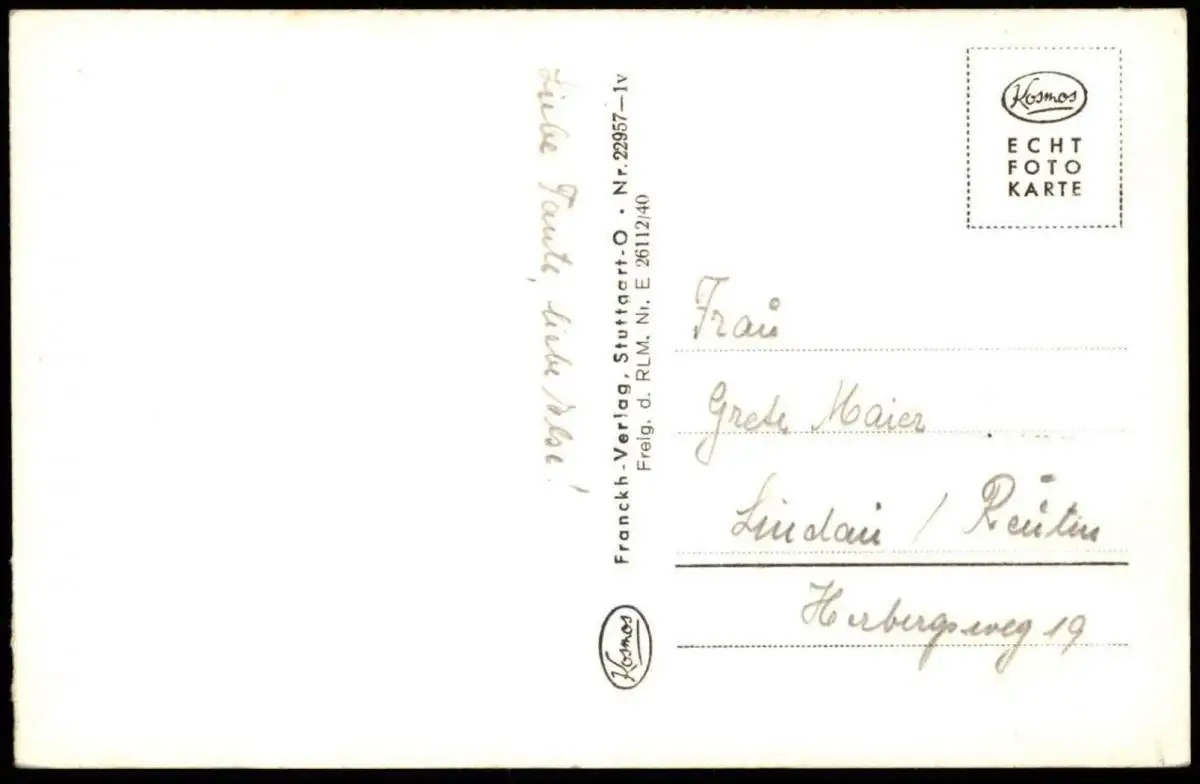 Liebe Tante, liebe Ilse!
Franckh-Verlag, Stuttgart-O • Nr. 22957—1v
Freig. d. RLM. Nr. E 26112/40
Kosmos
Kosmos
ECHT
FOTO
KARTE
Frau
Grete Maier
Lindau / Reutin
Herbergsweg 19